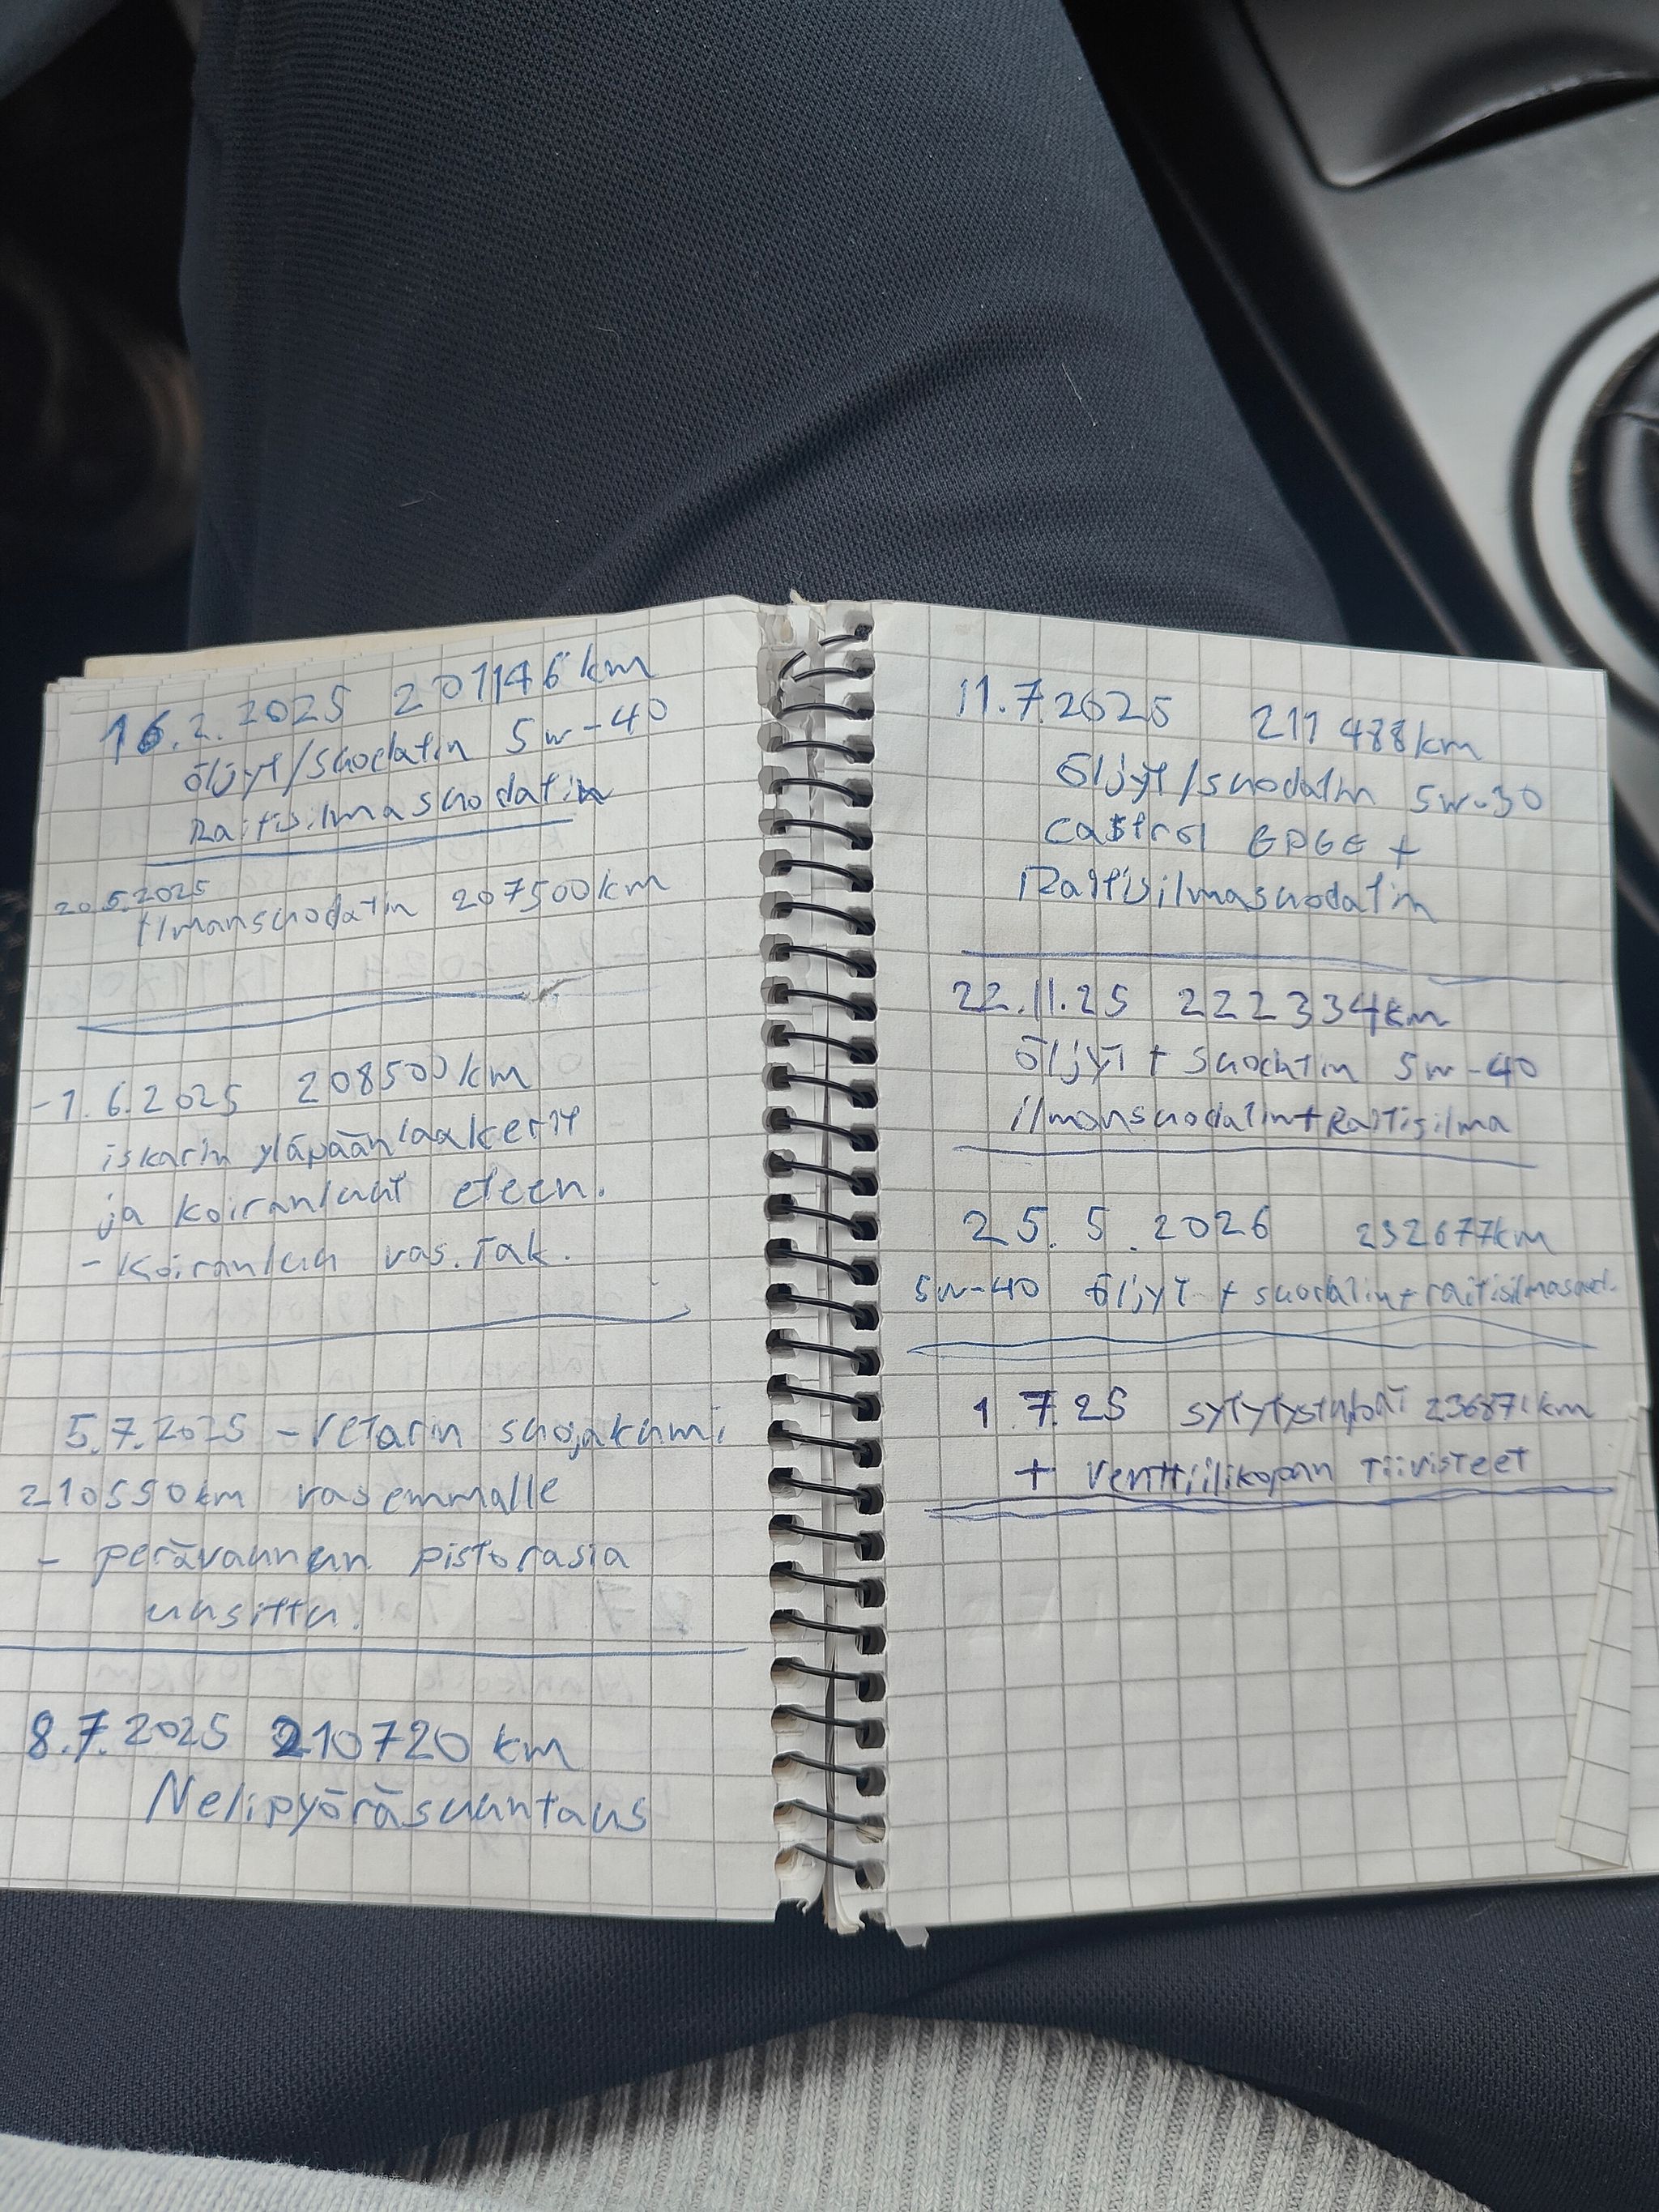 16.2.2025 201146 km
öljyt/suodatin 5w-40
Raitisilmasuodatin
20.5.2025
ilmansuodatin 207500km
-1.6.2025 208500km
iskarin yläpäänlaakerit
ja koiranluut eteen.
- Koiranluu vas. Tak.
5.7.2025 - vetarin suojakumi
210550km vasemmalle
- perävaunun pistorasia
uusittu.
8.7.2025 210720 km
Nelipyöräsuuntaus
11.7.2025 211 488km
öljyt/suodatin 5w-30
castrol EDGE +
Raitisilmasuodatin
22.11.25 222334km
öljyt + suodatin 5w-40
ilmansuodatin + Raitisilma
25.5.2026 232677km
5w-40 öljyt + suodatin + raitisilmasuod.
1.7.25 sytytystulpat 236871km
+ venttiilikopan tiivisteet